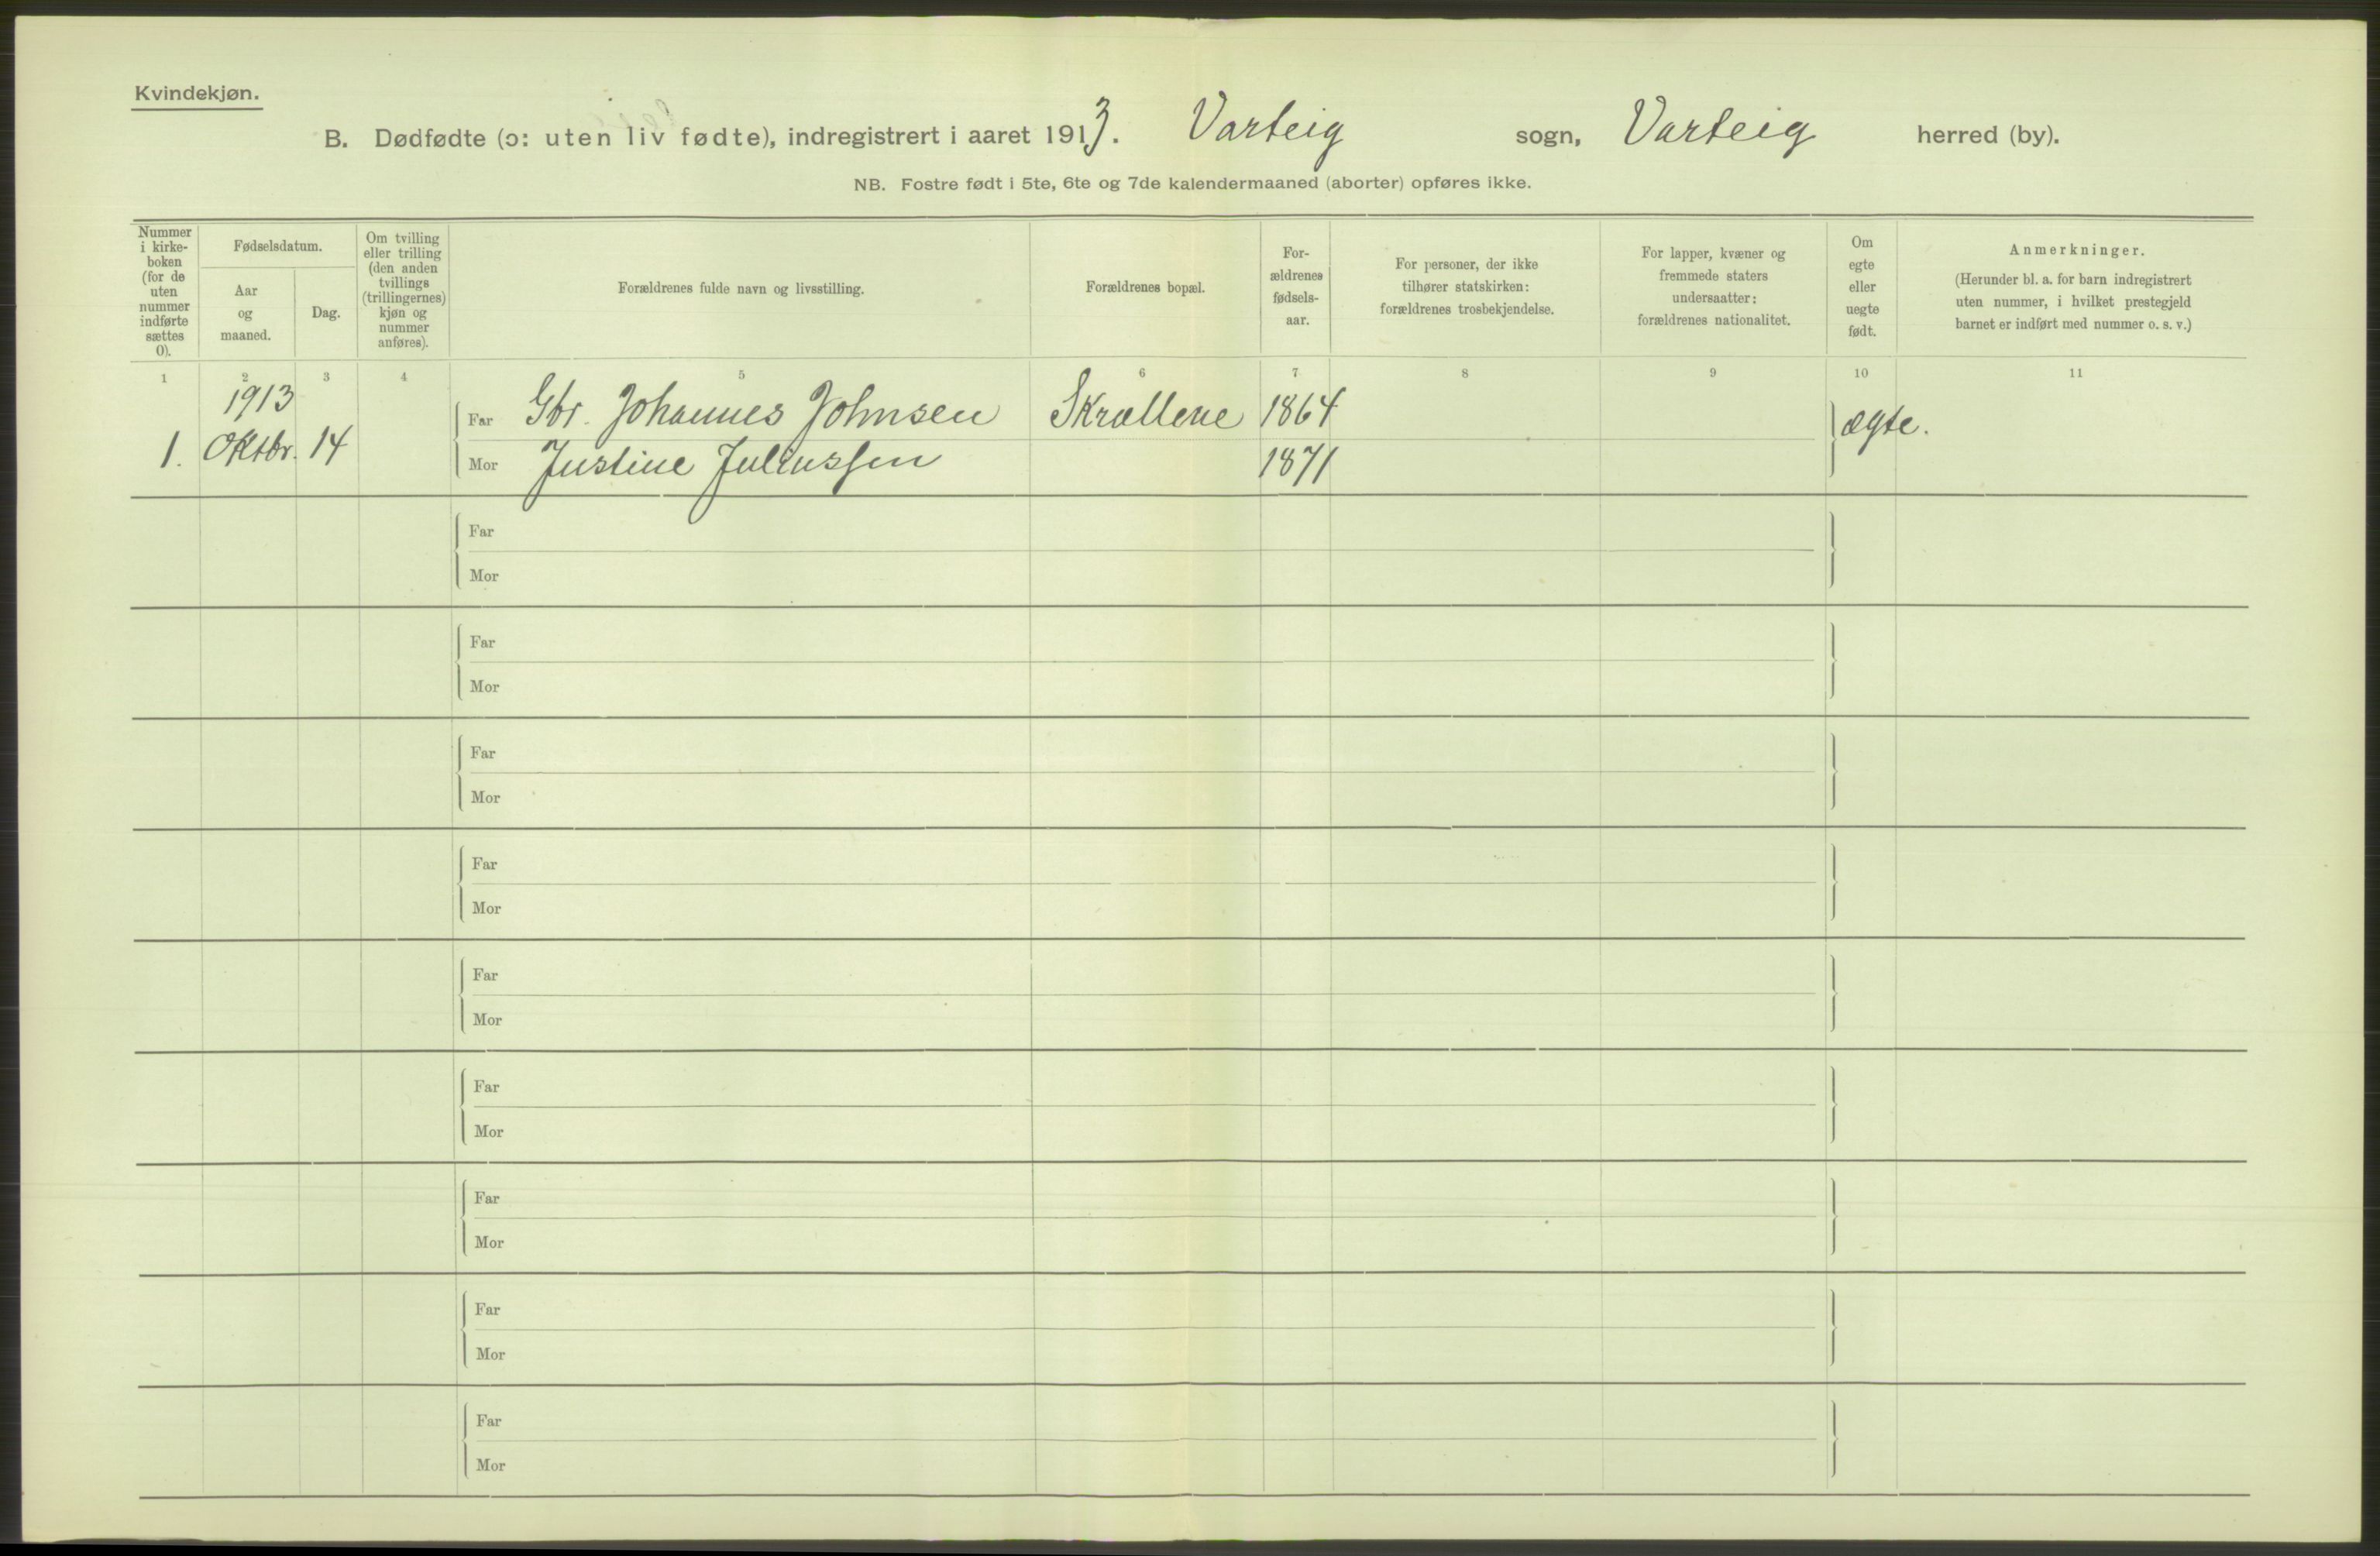 Kvindekjøn.
B. Dødfødte (ɔ: uten liv fødte), indregistrert i aaret 1913. Varteig sogn, Varteig herred (by).
NB. Fostre født i 5te, 6te og 7de kalendermaaned (aborter) opføres ikke.
Nummer
i kirke-
boken
(for de
uten
nummer
indførte
sættes
0).
Fødselsdatum.
Aar
og
maaned.
Dag.
Om tvilling
eller trilling
(den anden
tvillings
(trillingernes)
kjøn og
nummer
anføres).
Forældrenes fulde navn og livsstilling.
Forældrenes bopæl.
For-
ældrenes
fødsels-
aar.
For personer, der ikke
tilhører statskirken:
forældrenes trosbekjendelse.
For lapper, kvæner og
fremmede staters
undersaatter:
forældrenes nationalitet.
Om
egte
eller
uegte
født.
Anmerkninger.
(Herunder bl. a. for barn indregistrert
uten nummer, i hvilket prestegjeld
barnet er indført med nummer o. s. v.)
1 2 3 4 5 6 7 8 9 10 11
1913
Far Gbr. Johannes Johnsen Skrällene 1864 ægte.
1. Oktbr. 14 Mor Justine Juliussen 1871
Far
Mor
Far
Mor
Far
Mor
Far
Mor
Far
Mor
Far
Mor
Far
Mor
Far
Mor
Far
Mor